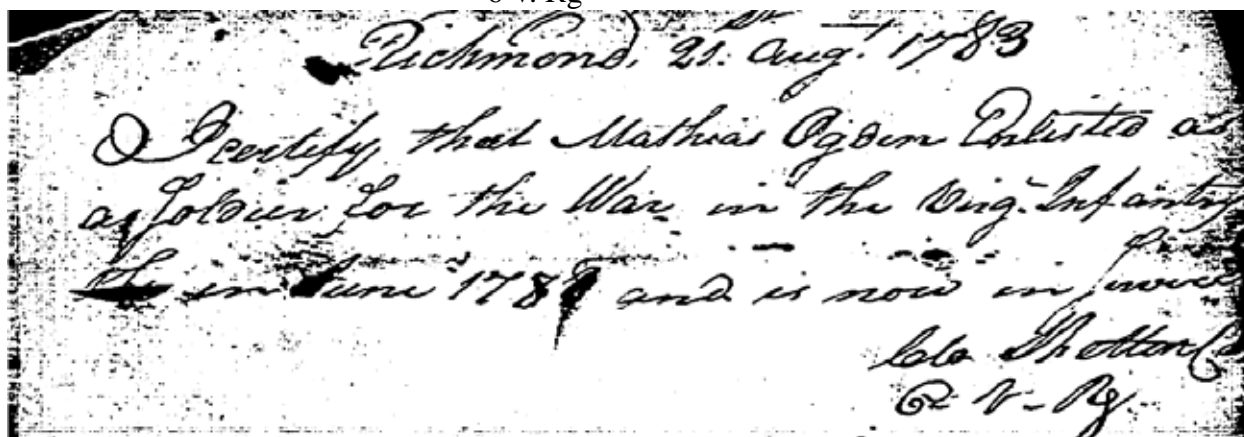 Richmond, 21st Augt 1783
I certify that Mathias Ogden Enlisted as
a Soldier for the War in the Virga. Infantry
in June 178 and is now in
Shelton
V. Rg.